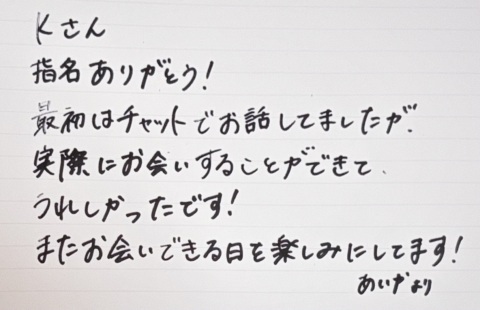 Kさん
指名ありがとう!
最初はチャットでお話してましたが、
実際にお会いすることができて、
うれしかったです!
またお会いできる日を楽しみにしてます!
あいかより